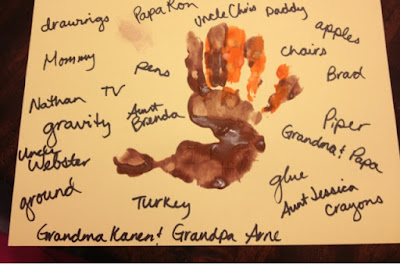 drawings
Papa Ron
Uncle Chris
Daddy
apples
Mommy
pens
chairs
Brad
Nathan
TV
gravity
Aunt
Brenda
Piper
Grandma & Papa
Under
Webster
glue
ground
Turkey
Aunt Jessica
Crayons
Grandma Karen & Grandpa Arne